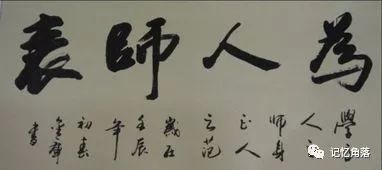 為人師表
學
人
師身
正人
之范
歲在
壬辰
年
初春
書
记忆角落